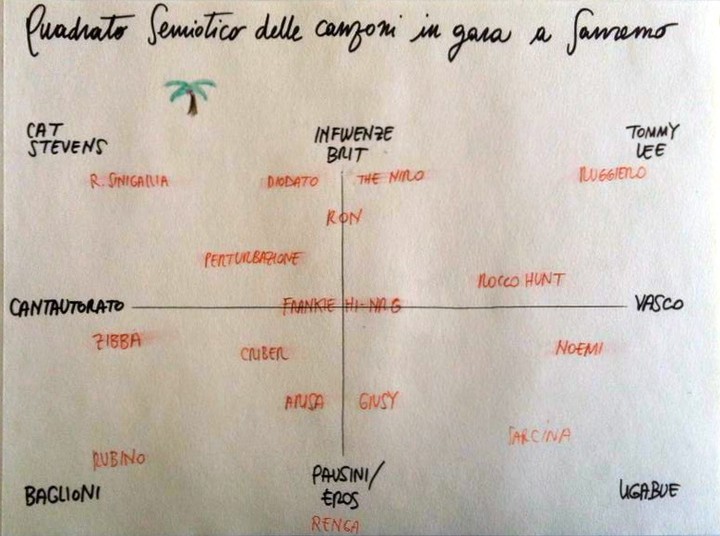 Quadrato Semiotico delle canzoni in gara a Sanremo
CAT
STEVENS
INFWENZE
BRIT
TOMMY
LEE
R. SINIGALLIA
DIODATO
THE NIRO
RUGGIERO
RON
PERTURBAZIONE
ROCCO HUNT
CANTAUTORATO
FRANKIE HI-NRG
VASCO
ZIBBA
CRIBER
NOEMI
ARISA
GIUSY
SARCINA
RUBINO
BAGLIONI
PAUSINI/
EROS
LIGABUE
RENGA